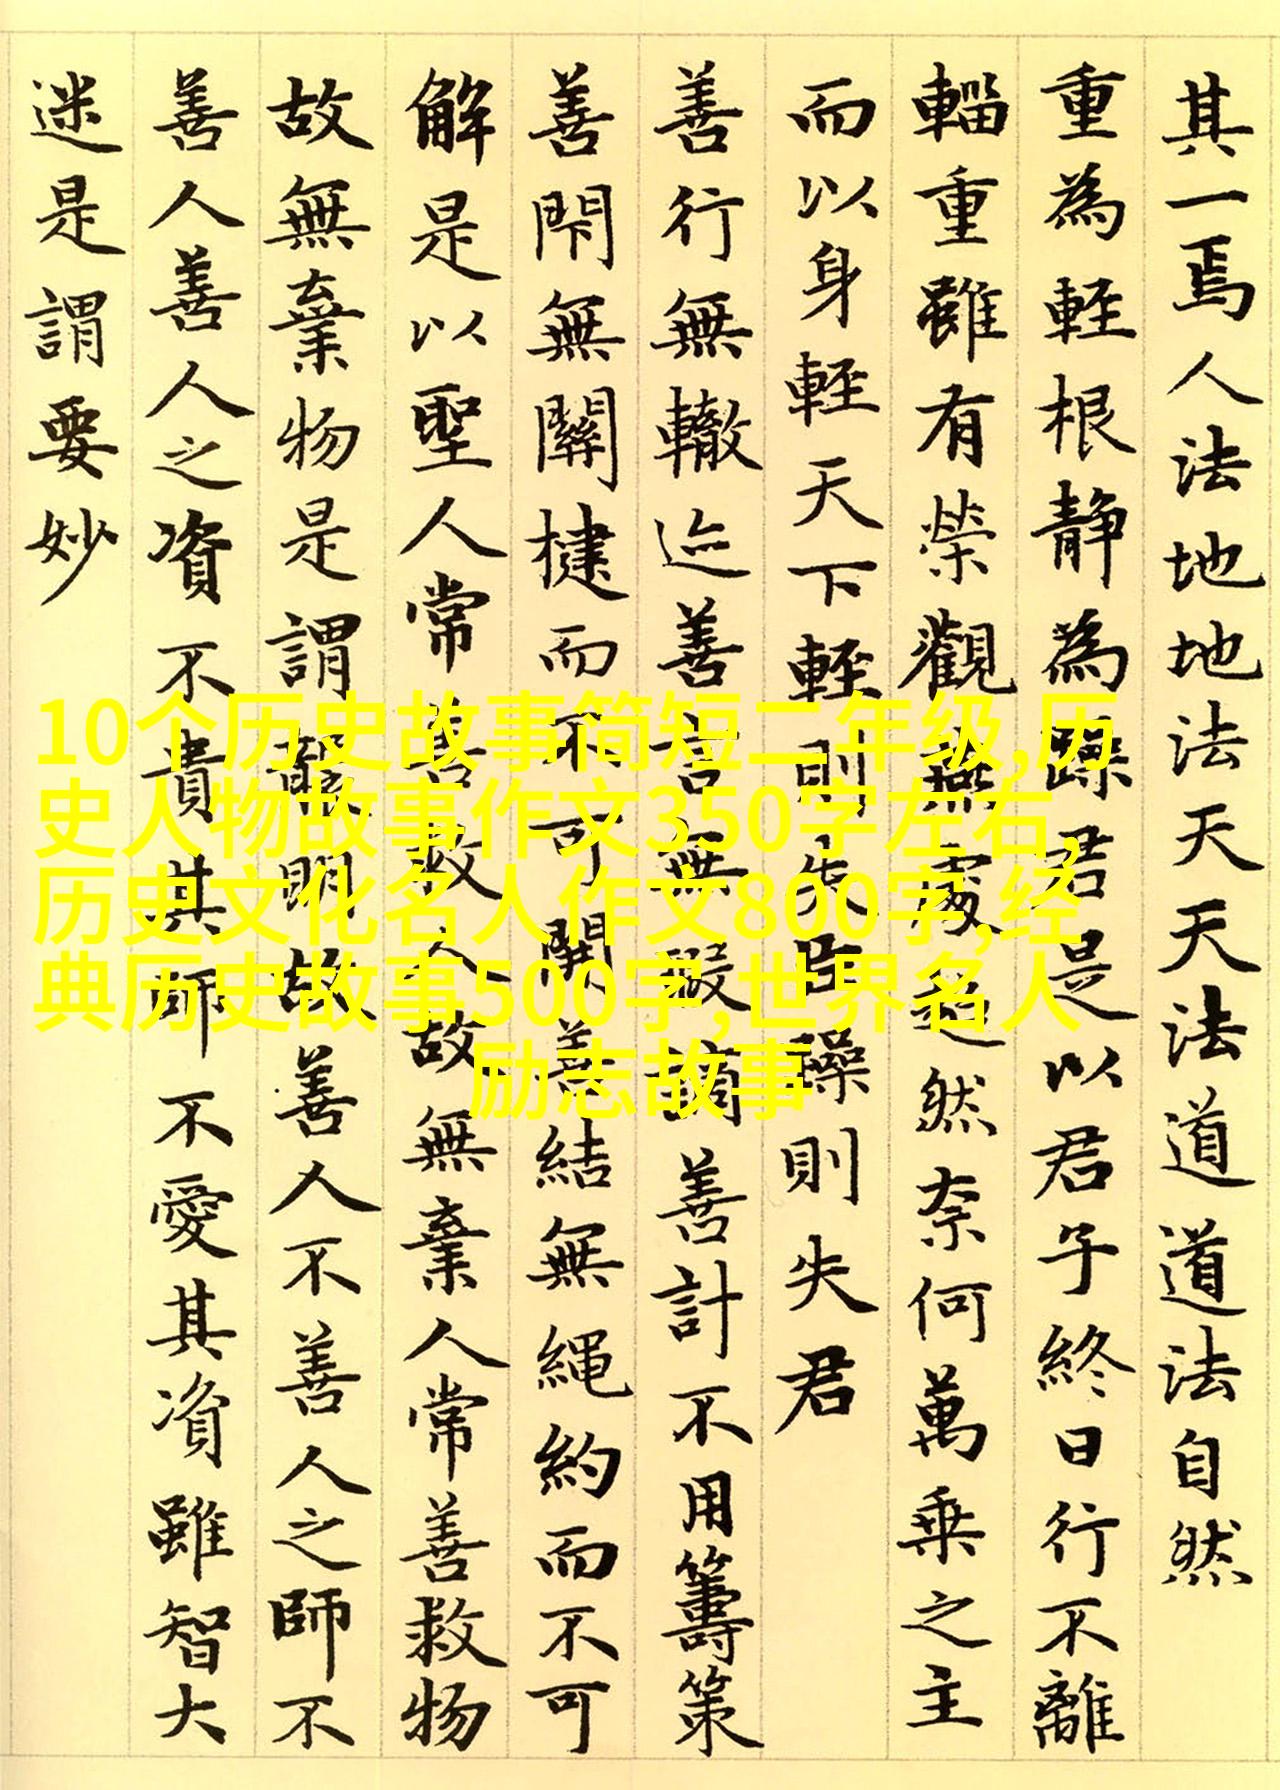 其一焉人法地地法天天法道道法自然
重為輕根靜為躁君是以君子終日行不離
輜重雖有榮觀燕處超然奈何萬乘之主
而以身輕天下輕則失臣躁則失君
善行無轍迹善言無瑕謫善計不用籌策
善閇無關楗而不可開善結無繩約而不可
解是以聖人常善救人故無棄人常善救物
故無棄物是謂襲明故善人不善人之師不
善人善人之資不貴其師不愛其資雖智大
迷是謂要妙
10个历史故事简短二年级,历
史人物故事作文350字左右,
历史文化名人作文800字,经
典历史故事500字,世界名人
励志故事